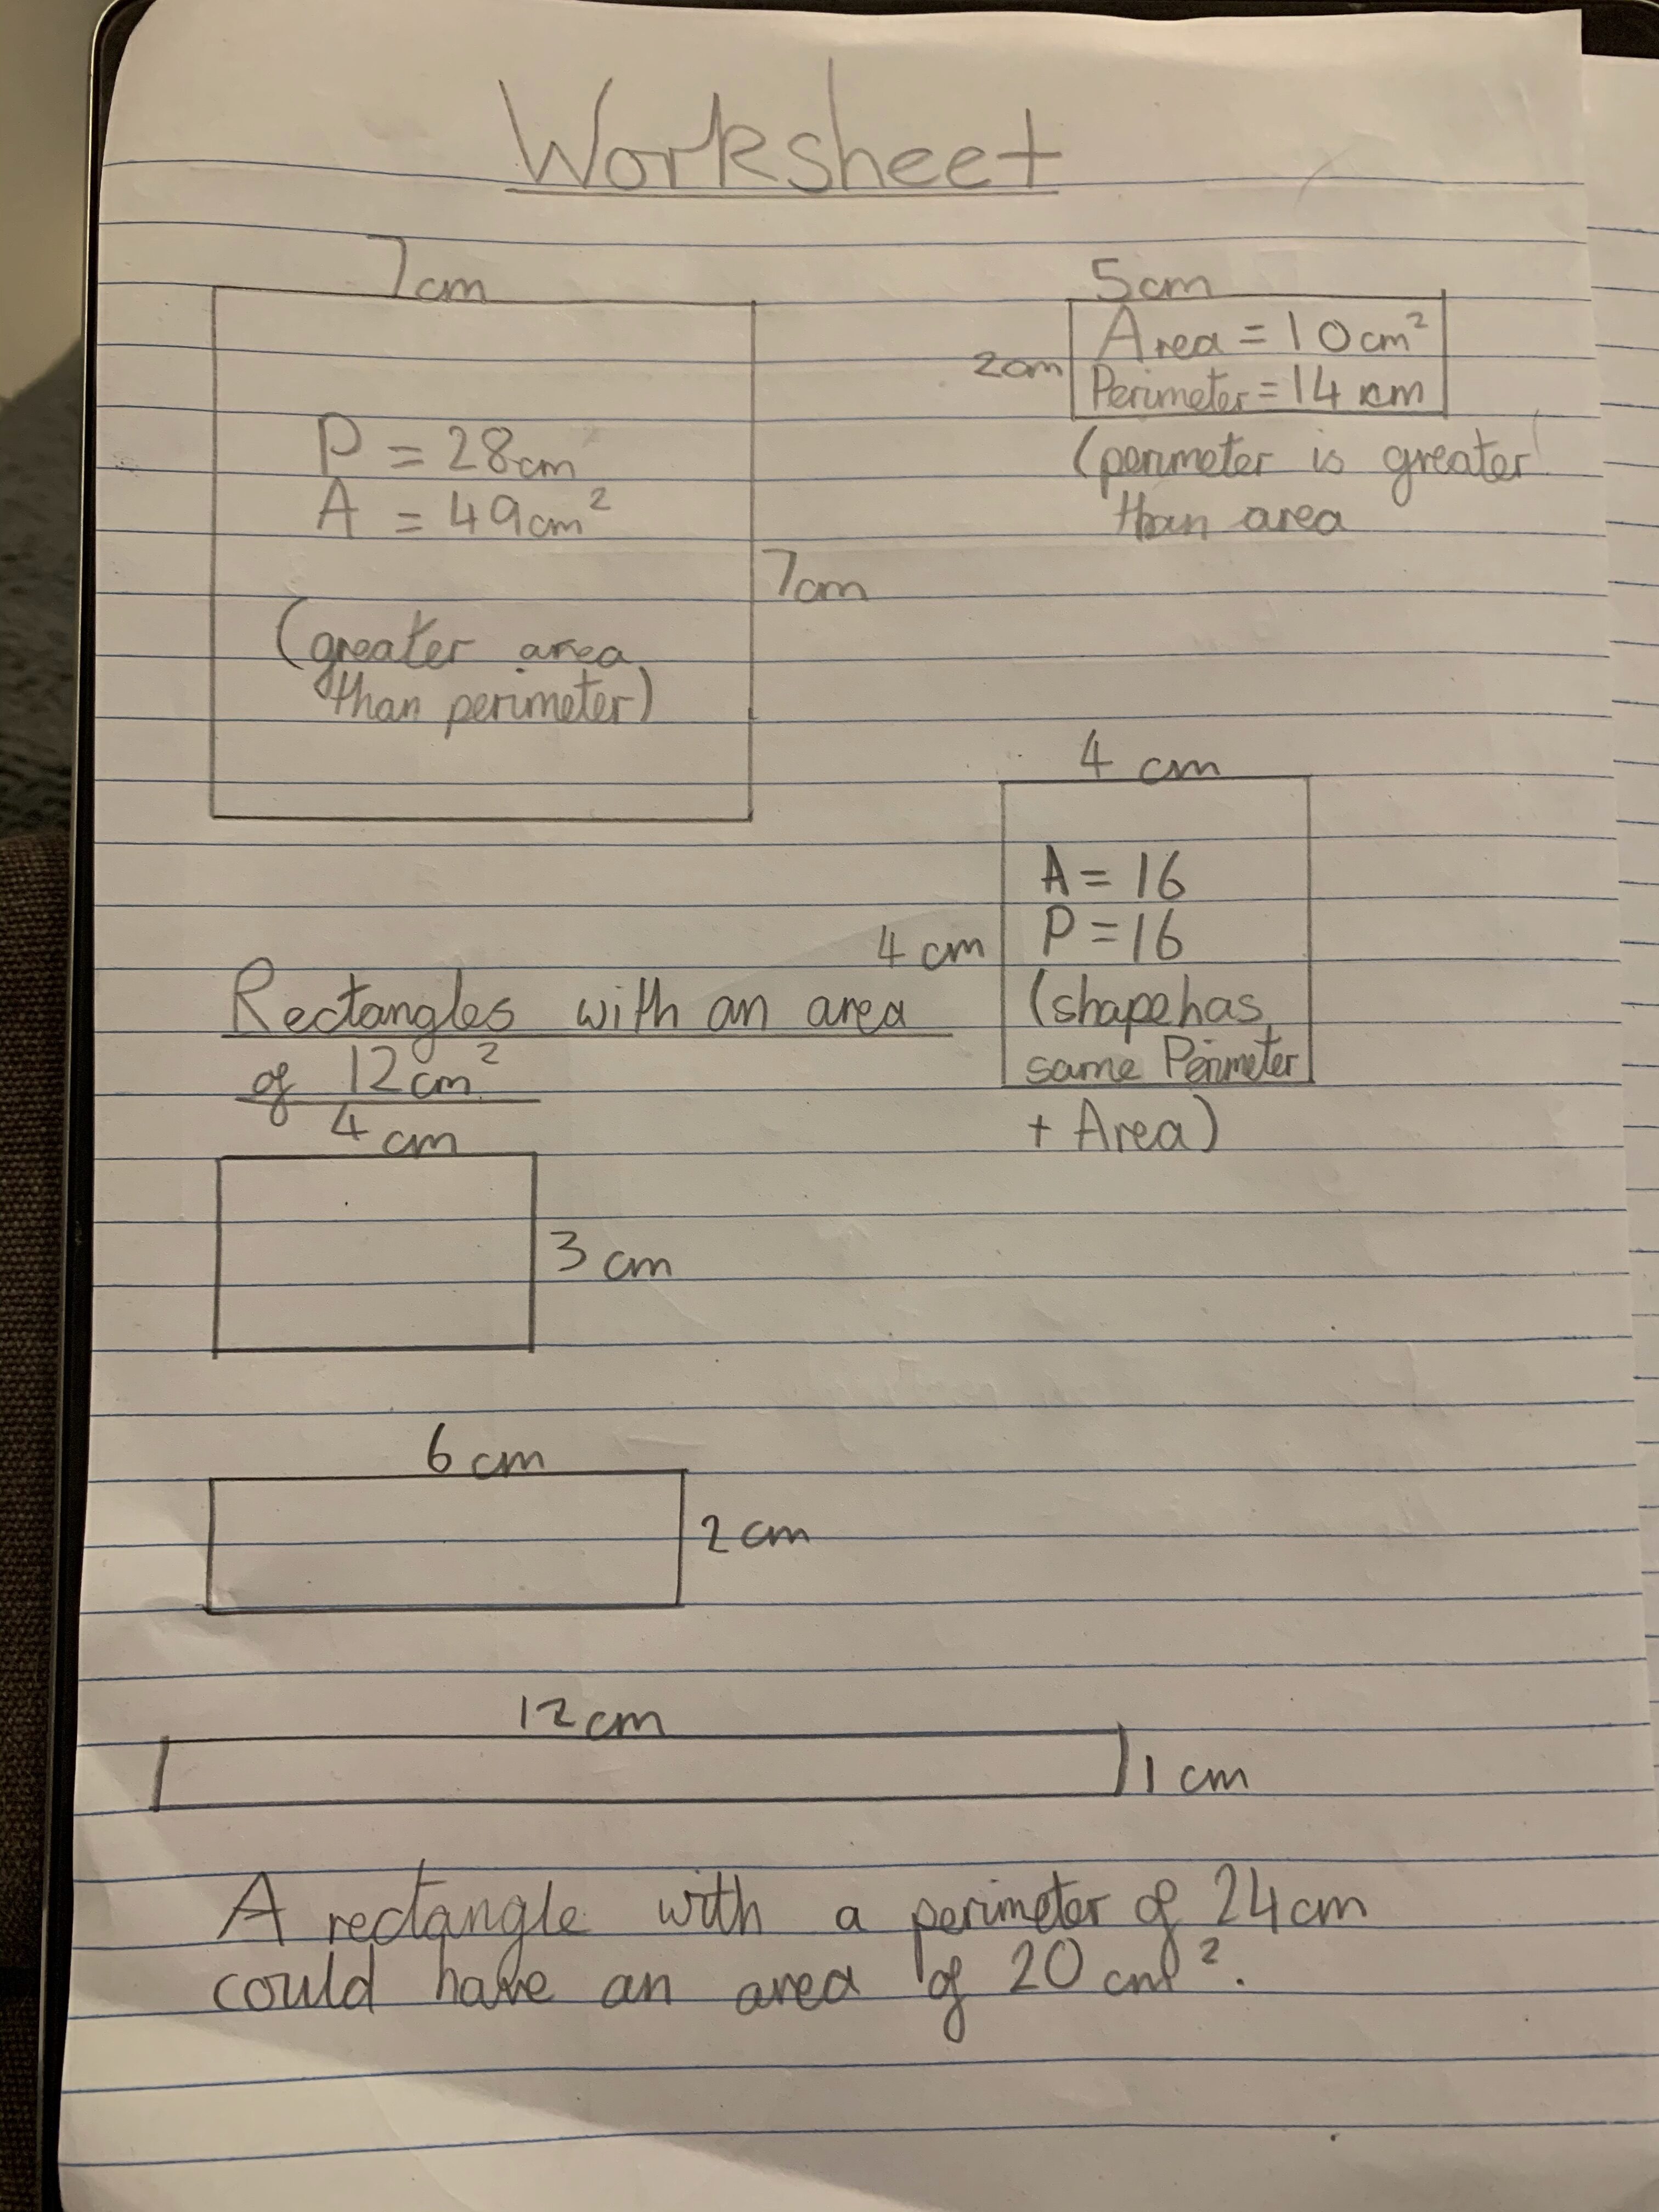 Worksheet
7cm
P = 28cm
A = 49cm²
7cm
(greater area
than perimeter)
5cm
2cm
Area = 10cm²
Perimeter = 14 cm
(perimeter is greater
than area
4 cm
4 cm
A = 16
P = 16
(shape has
same Perimeter
+ Area)
Rectangles with an area
of 12cm²
4 cm
3 cm
6 cm
2 cm
12 cm
1 cm
A rectangle with a perimeter of 24cm
could have an area of 20 cm².